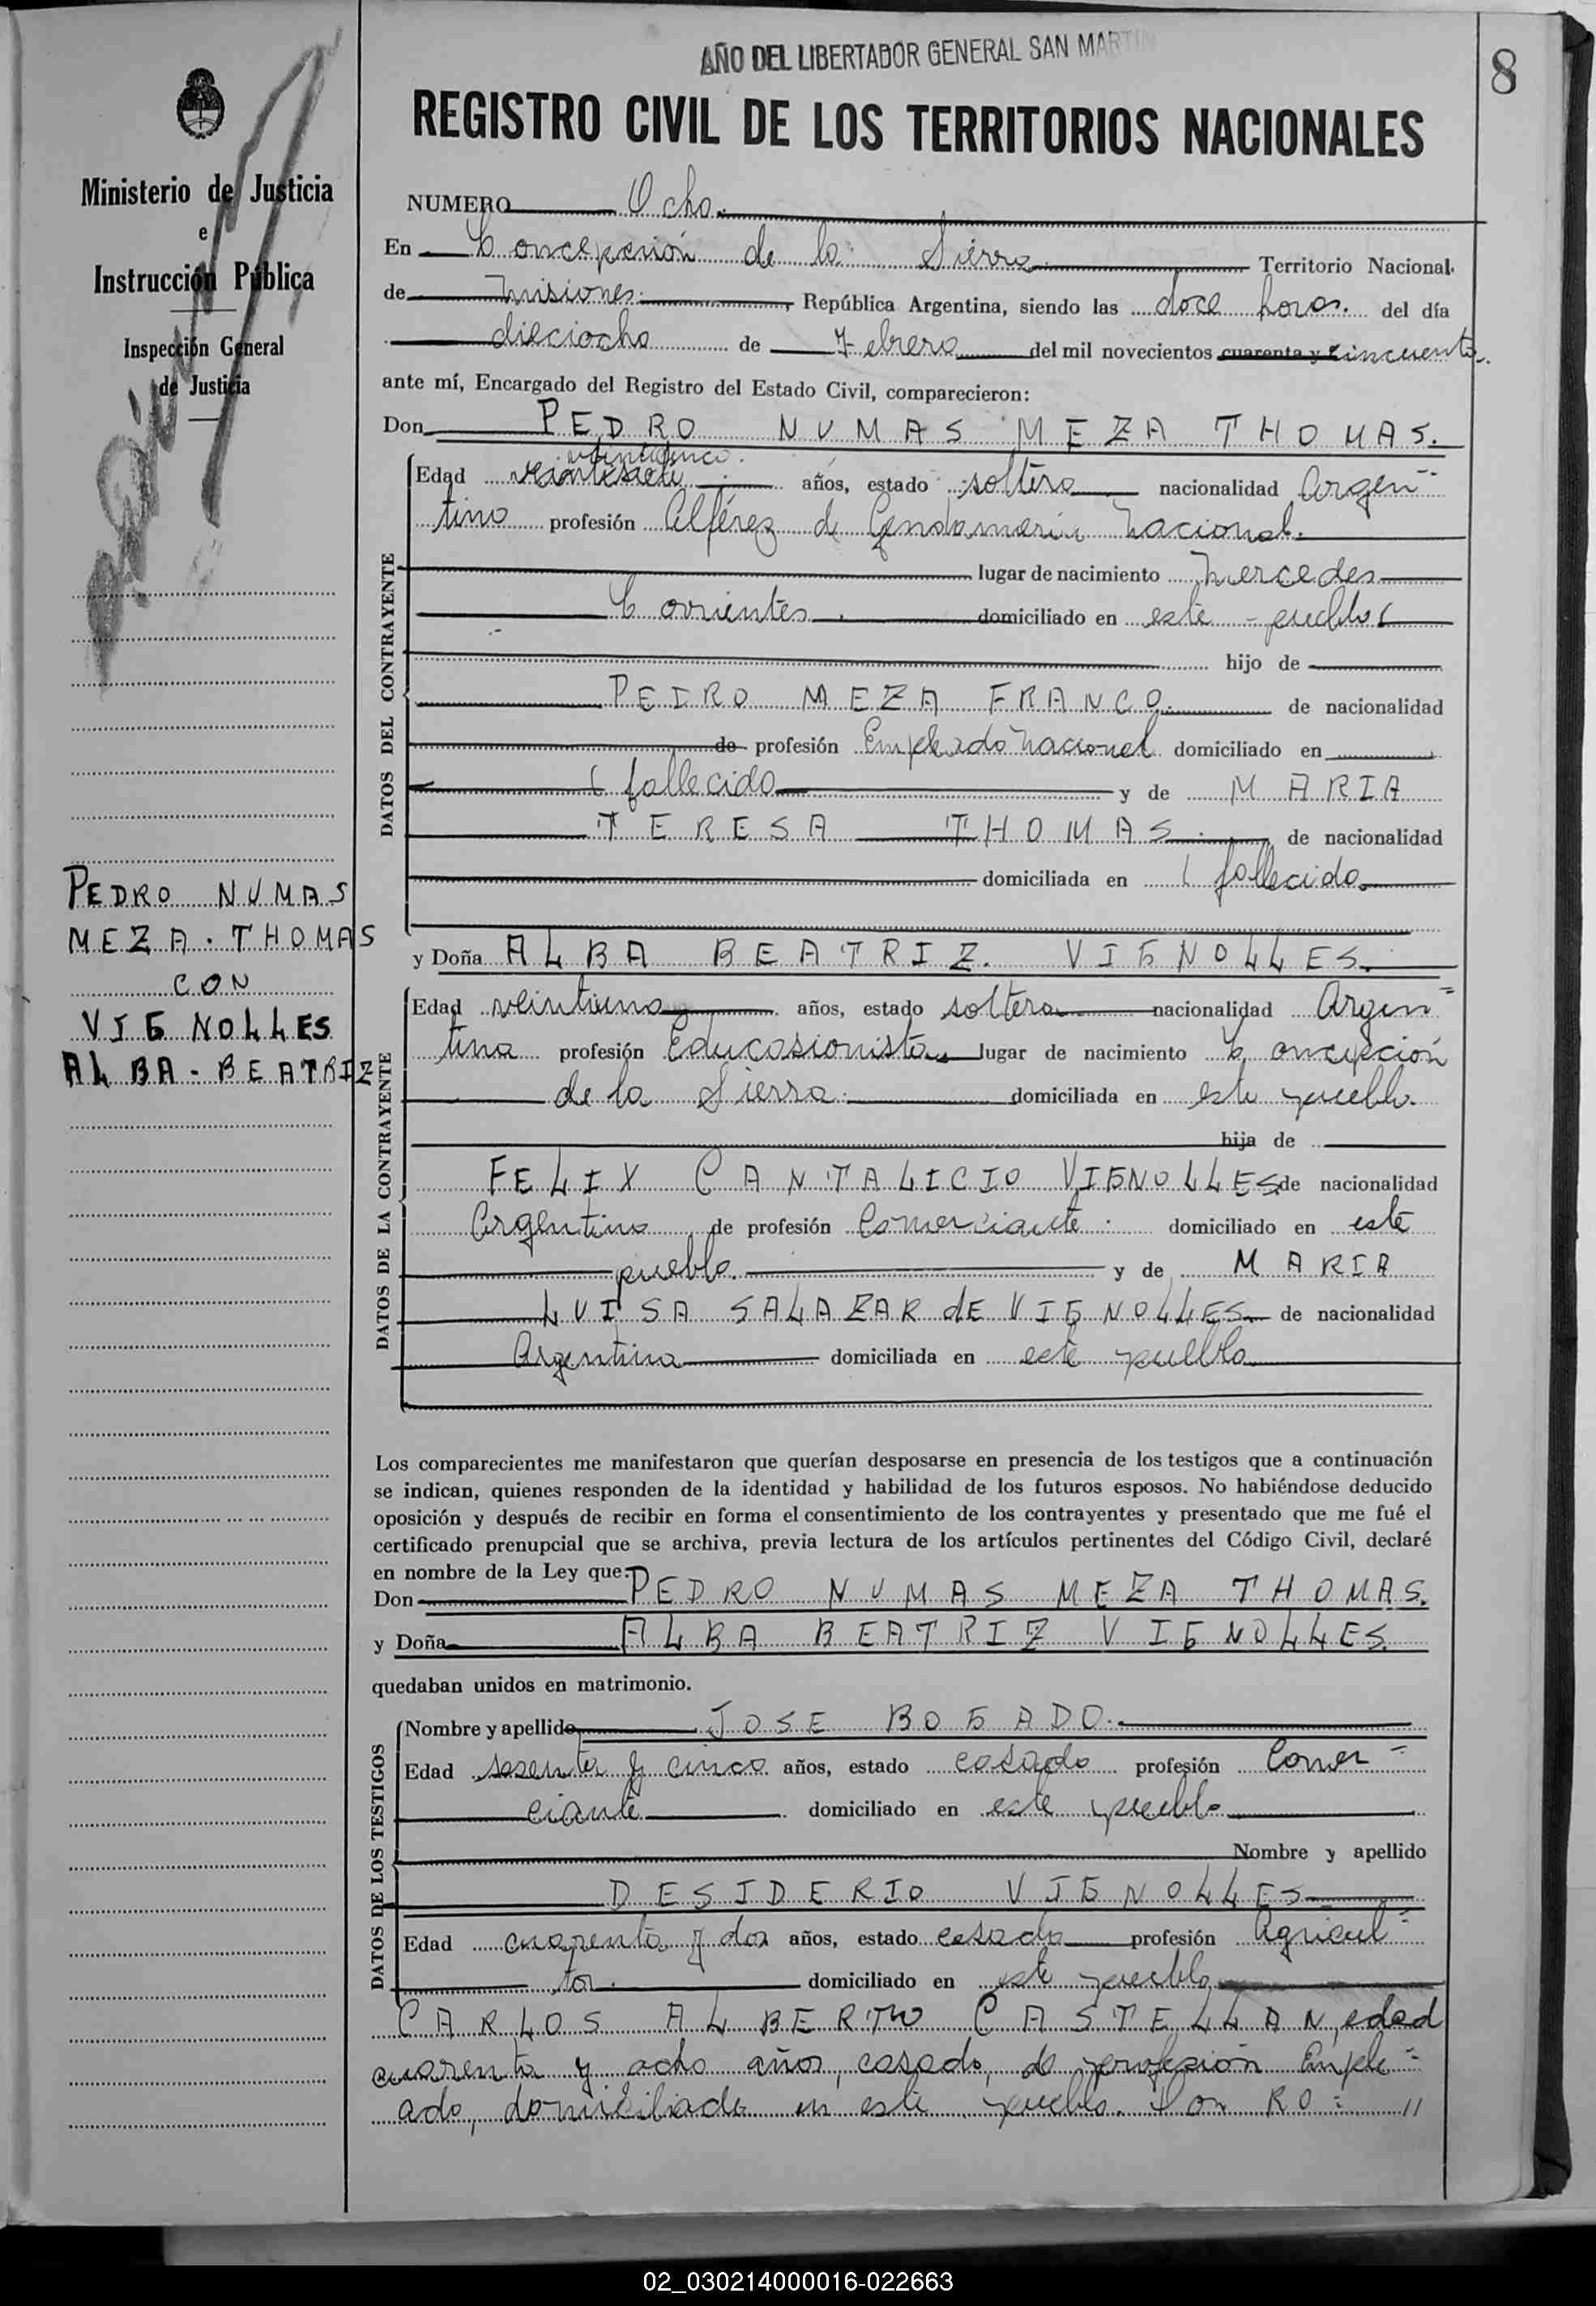 AÑO DEL LIBERTADOR GENERAL SAN MARTIN
8
REGISTRO CIVIL DE LOS TERRITORIOS NACIONALES
Ministerio de Justicia
e
Instrucción Pública
Inspección General
de Justicia
PEDRO NUMAS
MEZA . THOMAS
CON
VIGNOLLES
ALBA - BEATRIZ
NUMERO Ocho.
En Concepción de la Sierra Territorio Nacional
de Misiones República Argentina, siendo las doce horas. del día
dieciocho de Febrero del mil novecientos cuarenta y cincuenta.
ante mí, Encargado del Registro del Estado Civil, comparecieron:
Don PEDRO NUMAS MEZA THOMAS.
veinticinco.
Edad años, estado soltero nacionalidad Argen=
tino profesión Alférez de Gendarmería Nacional.
lugar de nacimiento Mercedes
Corrientes. domiciliado en este pueblo
hijo de
PEDRO MEZA FRANCO. de nacionalidad
de profesión Empleado Nacional domiciliado en
( fallecido y de MARIA
TERESA THOMAS. de nacionalidad
domiciliada en ( fallecida
y Doña ALBA BEATRIZ. VIGNOLLES.
Edad veintiuno años, estado soltera nacionalidad Argen=
tina profesión Educasionista lugar de nacimiento Concepción
de la Sierra. domiciliada en este pueblo.
hija de
FELIX CANTALICIO VIGNOLLES de nacionalidad
Argentino de profesión Comerciante. domiciliado en este
pueblo. y de MARIA
LUISA SALAZAR dE VIGNOLLES de nacionalidad
Argentina domiciliada en este pueblo
DATOS DEL CONTRAYENTE
DATOS DE LA CONTRAYENTE
Los comparecientes me manifestaron que querían desposarse en presencia de los testigos que a continuación
se indican, quienes responden de la identidad y habilidad de los futuros esposos. No habiéndose deducido
oposición y después de recibir en forma el consentimiento de los contrayentes y presentado que me fué el
certificado prenupcial que se archiva, previa lectura de los artículos pertinentes del Código Civil, declaré
en nombre de la Ley que:
Don PEDRO NUMAS MEZA THOMAS.
y Doña ALBA BEATRIZ VIGNOLLES.
quedaban unidos en matrimonio.
DATOS DE LOS TESTIGOS
Nombre y apellido JOSE BOGADO.
Edad sesenta y cinco años, estado casado profesión Comer=
ciante domiciliado en este pueblo
Nombre y apellido
DESIDERIO VIGNOLLES
Edad cuarenta y dos años, estado casado profesión Agricul=
tor. domiciliado en este pueblo
CARLOS ALBERTO CASTELLAN, edad
cuarenta y ocho años, casado, de profesión Emple=
ado, domiciliado en este pueblo. Por RO= "
02_030214000016-022663